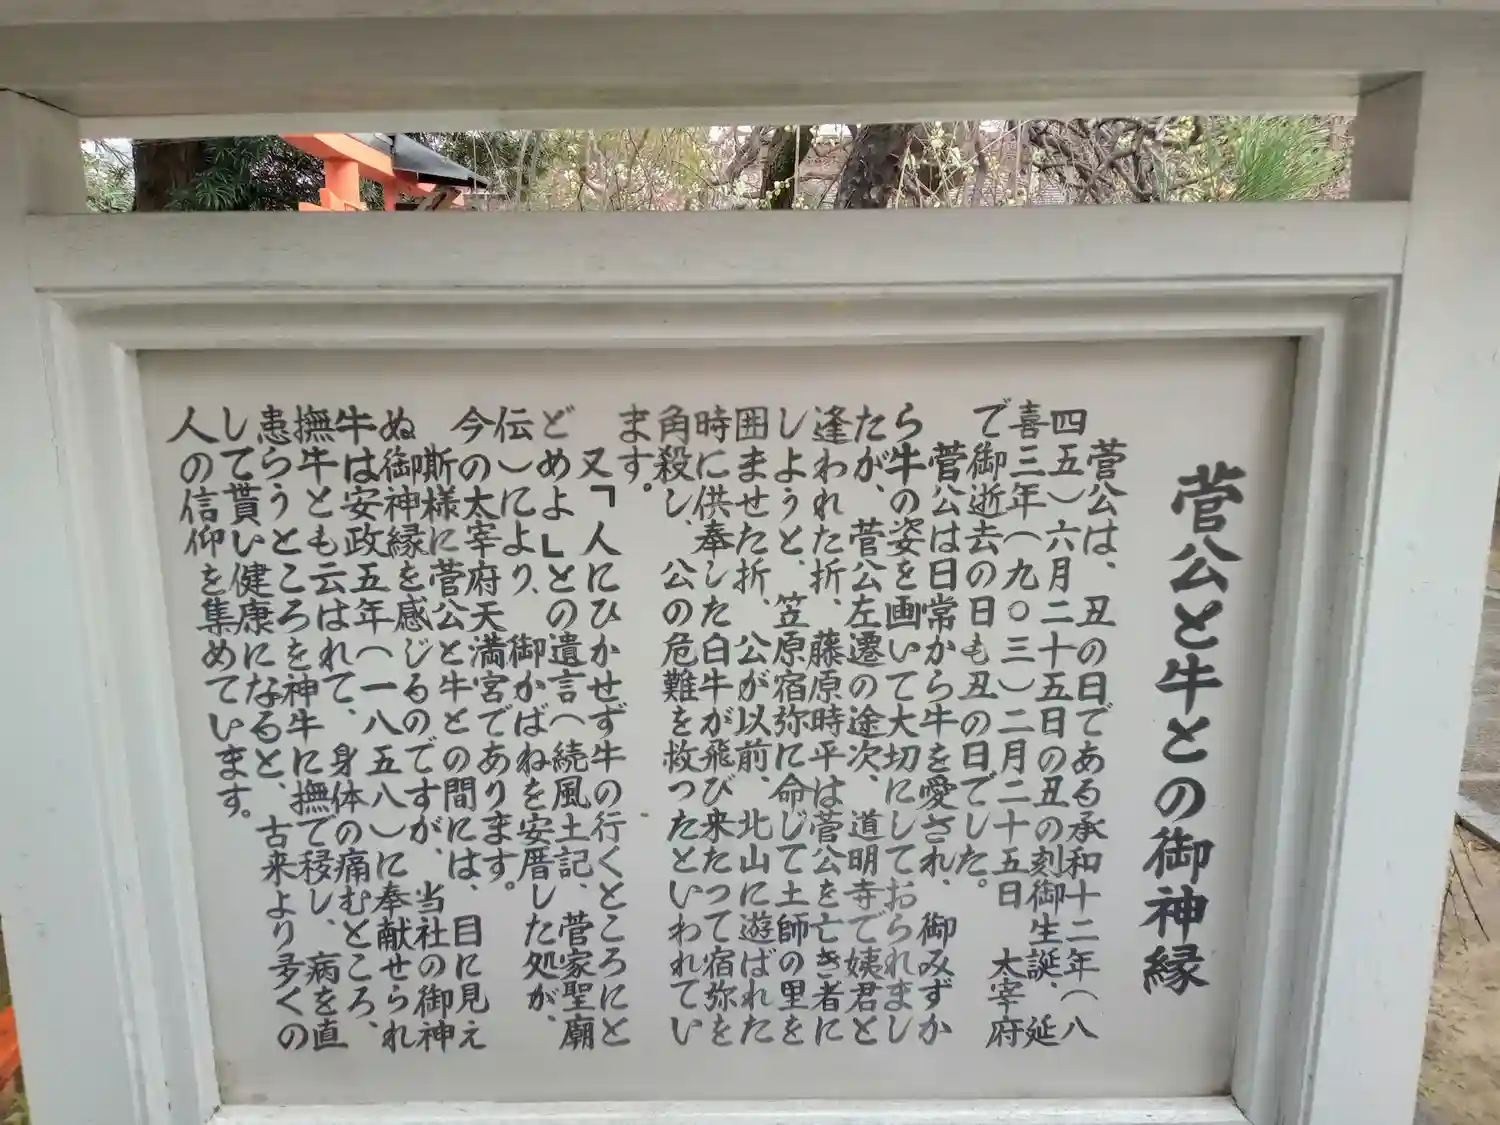 菅公と牛との御神縁
菅公は、丑の日である承和十二年(八
四五)六月二十五日の丑の刻御生誕、延
喜三年(九〇三)二月二十五日 太宰府
で御逝去の日も丑の日でした。
菅公は日常から牛を愛され、御みずか
ら牛の姿を画いて大切にしておられまし
たが、菅公左遷の途次、道明寺で姨君と
逢われた折、藤原時平は菅公を亡き者に
しようと、笠原宿弥に命じて土師の里を
囲ませた折、公が以前、北山に遊ばれた
時に供奉した白牛が飛び来たって宿弥を
角殺し、公の危難を救ったといわれてい
ます。
又「人にひかせず牛の行くところにと
どめよ」との遺言(続風土記、菅家聖廟
伝)により、御かばねを安厝した処が、
今の太宰府天満宮であります。
斯様に菅公と牛との間には、目に見え
ぬ御神縁を感じるのですが、当社の御神
牛は安政五年(一八五八)に奉献せられ
撫牛とも云はれて、身体の痛むところ、
患らうところを神牛に撫て祲し、病を直
して貰い健康になると、古来より多くの
人の信仰を集めています。